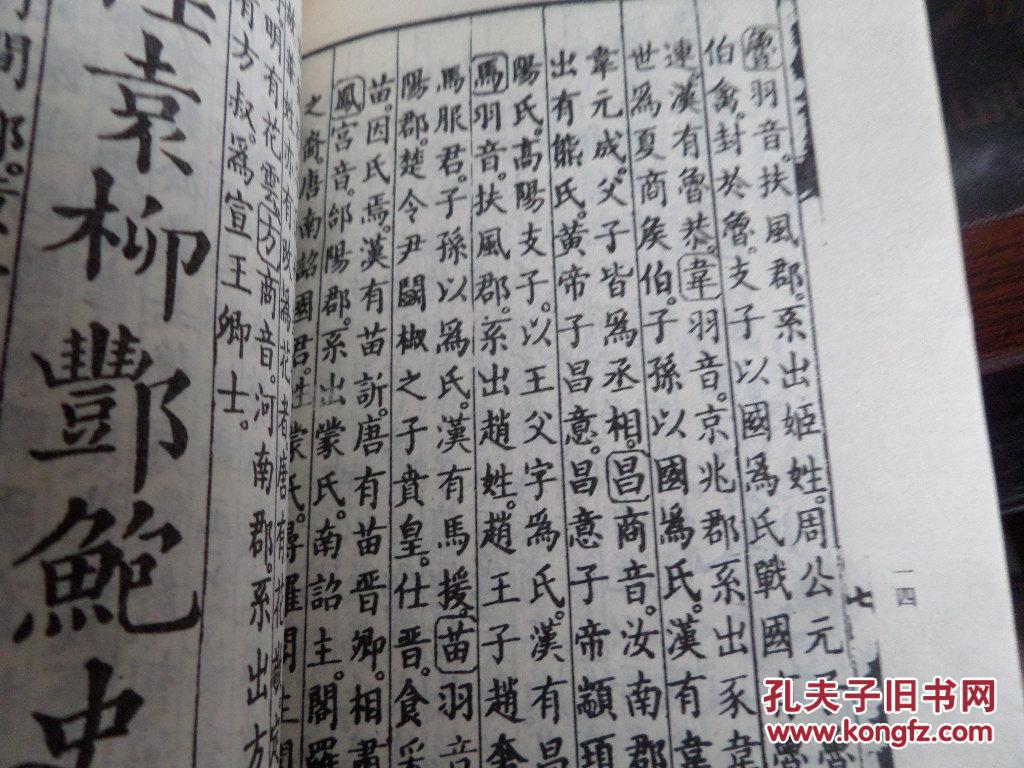 一四
七
魯羽音。扶風郡。系出姬姓。周公元
伯禽。封於魯。支子以國爲氏戰國
連。漢有魯恭。韋羽音。京兆郡系出豕韋
世爲夏商侯伯。子孫以國爲氏。漢有韋
韋元成。父子皆爲丞相。昌商音。汝南郡
出有熊氏。黃帝子昌意。昌意子帝顓頊
陽氏。高陽支子。以王父字爲氏。漢有昌
馬羽音。扶風郡。系出趙姓。趙王子趙奢
馬服君。子孫以爲氏。漢有馬援。苗羽音
陽郡。楚令尹鬬椒之子賁皇。仕晉。食采
苗。因氏焉。漢有苗訢。唐有苗晉卿。相肅
鳳宮音。郃陽郡。系出蒙氏。南詔主。閣羅
之裔。唐南詔國君。姓蒙氏。
明有花雲。方商音。河南郡。系出方
有方叔。爲宣王卿士。
袁柳酆鮑史
間郡。
孔夫子旧书网
www.kongfz.com